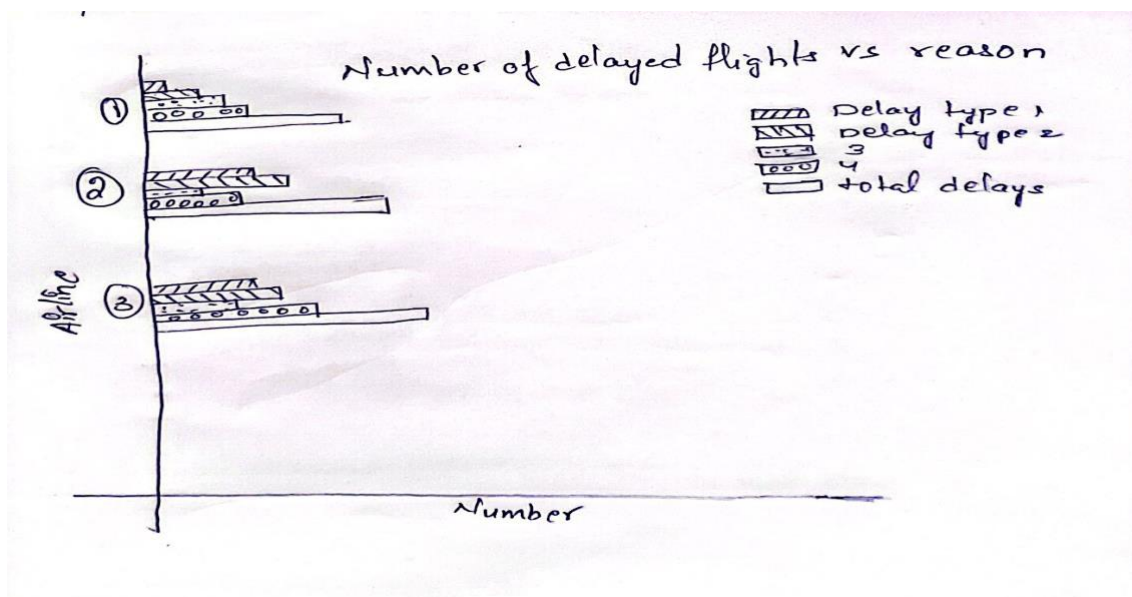 Number of delayed flights vs reason
Delay type 1
Delay type 2
3
4
total delays
1
2
3
Airline
Number